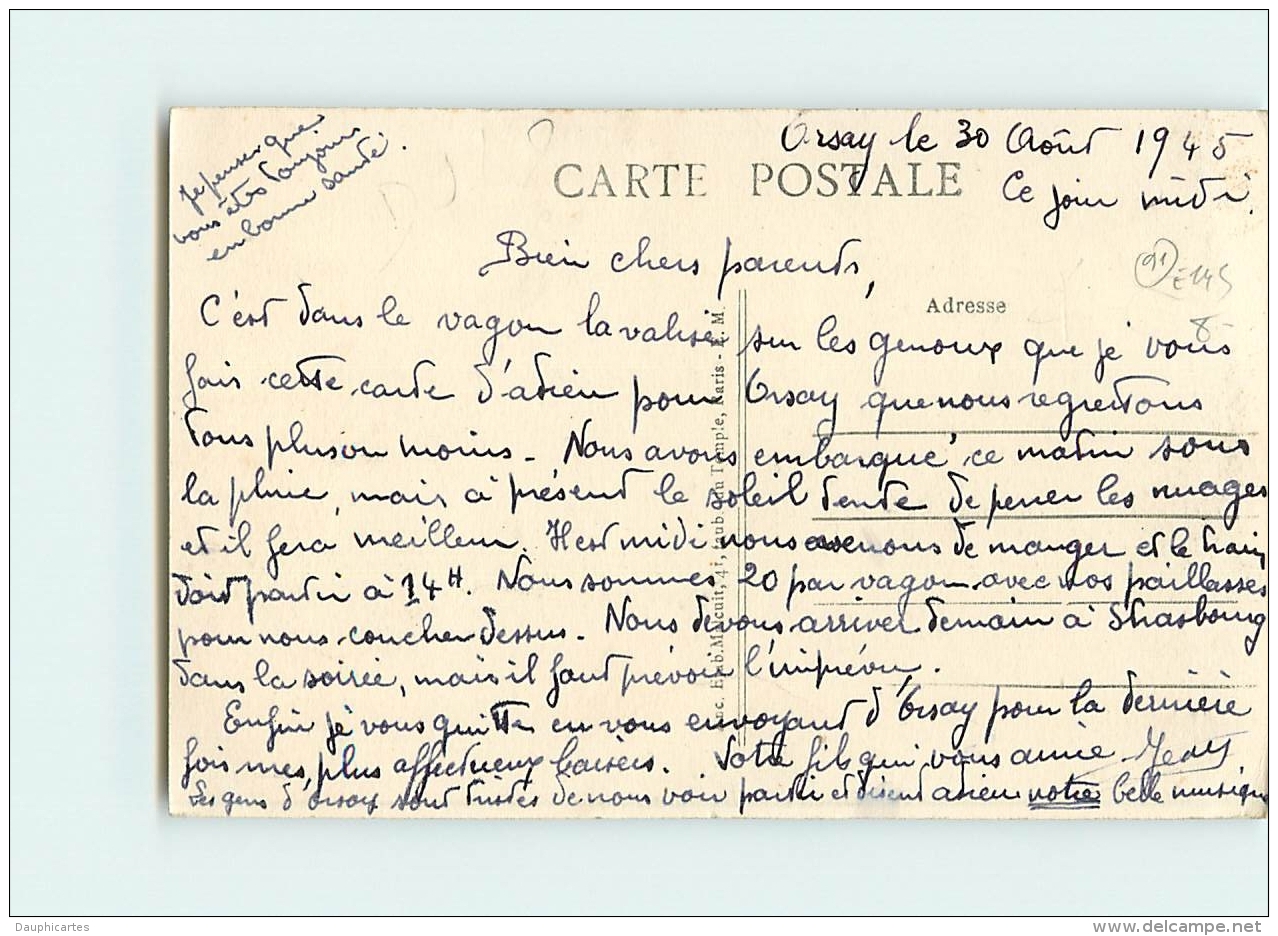 Orsay le 30 Août 1945
CARTE POSTALE
Ce jour midi.
Je pense que
vous êtes toujours
en bonne santé.
Bien chers parents,
91
E145
8-
Adresse
C'est dans le vagon la valise sur les genoux que je vous
fais cette carte d'adieu pour Orsay que nous regrettons
tous plus ou moins - Nous avons embarqué ce matin sous
la pluie, mais à présent le soleil tente de percer les nuages
et il fera meilleur. Il est midi nous venons de manger et le train
doit partir à 14H. Nous sommes 20 par vagon avec nos paillasses
pour nous coucher dessus. Nous devons arriver demain à Strasbourg
dans la soirée, mais il faut prévoir l'imprévu.
Enfin je vous quitte en vous envoyant d'Orsay pour la dernière
fois mes plus affectueux baisers. Votre fils qui vous aime
Les gens d'Orsay sont tristes de nous voir partir et disent adieu notre belle musique
Anc. Etab. Malcuit, 41, faub. du Temple, Paris - E. M.
Dauphicartes
delcampe.net